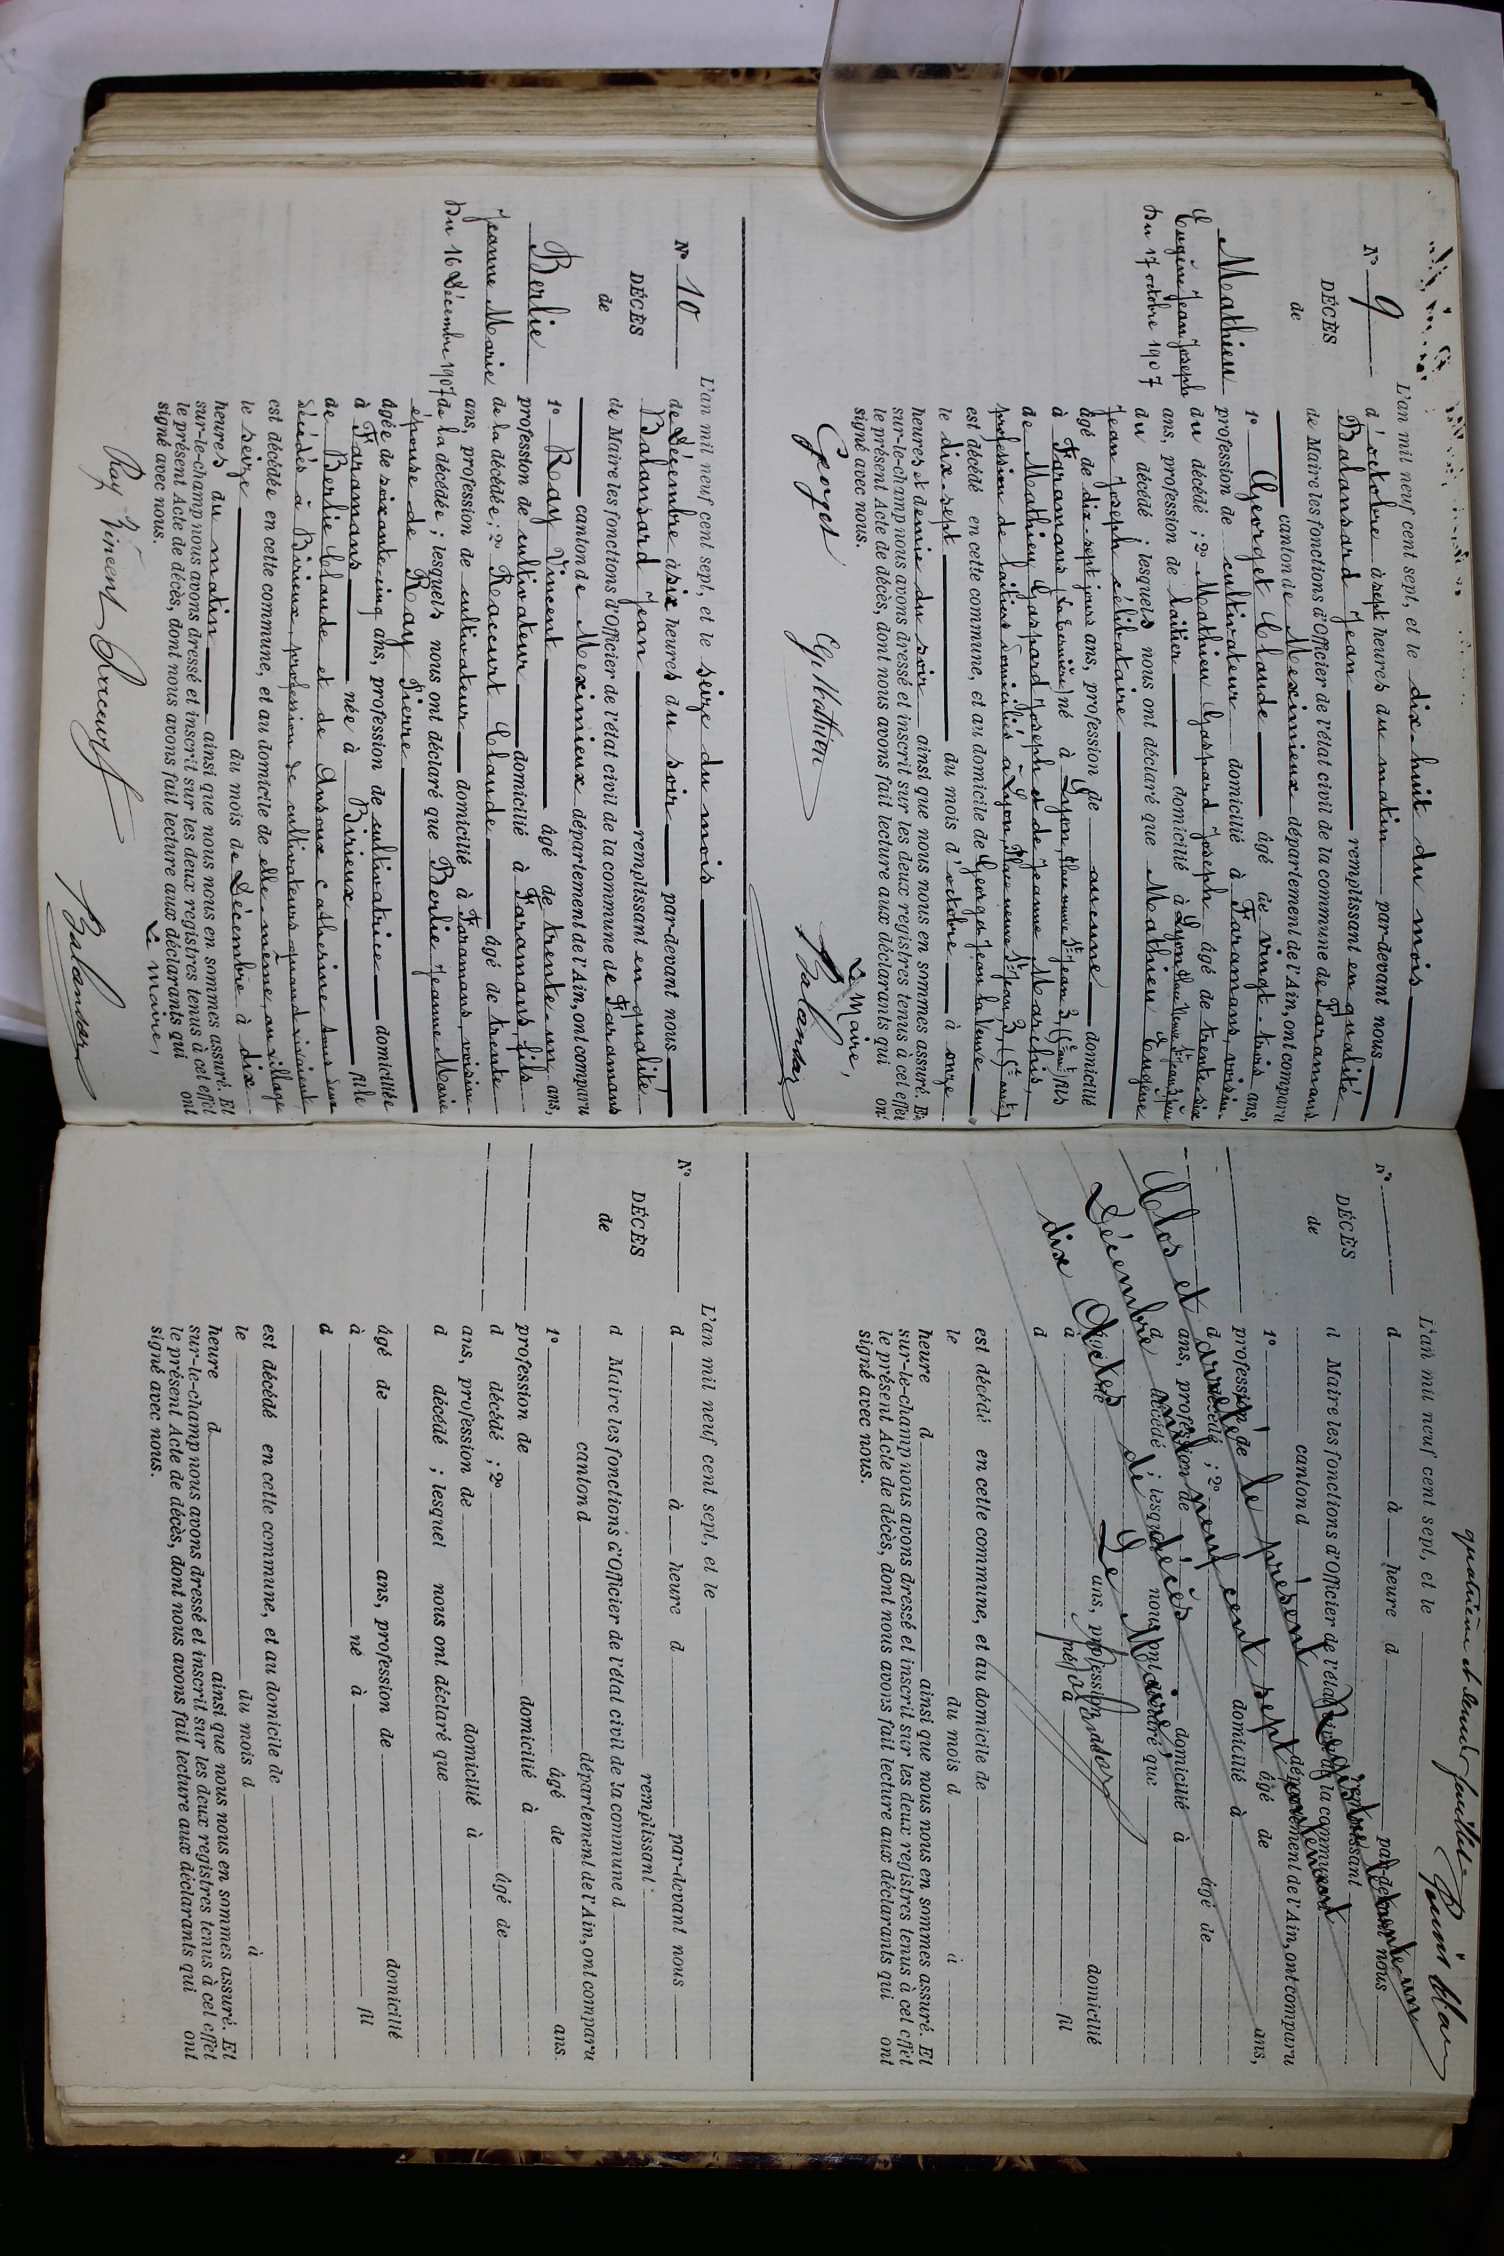 N° 9
DÉCÈS
de
Mathieu
Eugène Jean Joseph
Du 17 octobre 1907
L'an mil neuf cent sept, et le dix-huit du mois
d'octobre à sept heures du matin par-devant nous
Balansard Jean remplissant en qualité
de Maire les fonctions d'Officier de l'état civil de la commune de Faramans
canton de Meximieux département de l'Ain, ont comparu
1° Georget Claude âgé de vingt-trois ans,
profession de cultivateur domicilié à Faramans, voisin
du décédé ; 2° Mathieu Gaspard Joseph âgé de trente-six
ans, profession de laitier domicilié à Lyon Place neuve St Jean 3, père
du décédé ; lesquels nous ont déclaré que Mathieu Eugène
Jean Joseph célibataire
âgé de dix-sept jours ans, profession de aucune domicilié
à Faramans né à Lyon, Place neuve St Jean 3, (5e arrt) fils
de Mathieu Gaspard Joseph et de Jeanne Marchis,
profession de laitiers domiciliés à Lyon, Place neuve St Jean, 3, (5e arrt)
est décédé en cette commune, et au domicile de Georges Jean
le dix-sept du mois d'octobre à onze
heures et demie du soir ainsi que nous nous en sommes assuré. Et
sur-le-champ nous avons dressé et inscrit sur les deux registres tenus à cet effet
le présent Acte de décès, dont nous avons fait lecture aux déclarants qui ont
signé avec nous.
Le Maire,
Georget Mathieu Balansard
N° 10
DÉCÈS
de
Berlie
Jeanne Marie
Du 16 Décembre 1907
L'an mil neuf cent sept, et le seize du mois
de Décembre à six heures du soir par-devant nous
Balansard Jean remplissant en qualité
de Maire les fonctions d'Officier de l'état civil de la commune de Faramans
canton de Meximieux département de l'Ain, ont comparu
1° Ray Vincent âgé de trente-un ans,
profession de cultivateur domicilié à Faramans, fils
de la décédée ; 2° Raccurt Claude âgé de trente
ans, profession de cultivateur domicilié à Faramans, voisin
de la décédée ; lesquels nous ont déclaré que Berlie Jeanne Marie
épouse de Ray Pierre
âgée de soixante-cinq ans, profession de cultivatrice domiciliée
à Faramans née à Birieux fille
de Berlie Claude et de Ansoux Catherine tous deux
décédés à Birieux, profession de cultivateurs quand vivaient
est décédée en cette commune, et au domicile de elle-même, au village
le seize du mois de Décembre à dix
heures du matin ainsi que nous nous en sommes assuré. Et
sur-le-champ nous avons dressé et inscrit sur les deux registres tenus à cet effet
le présent Acte de décès, dont nous avons fait lecture aux déclarants qui ont
signé avec nous.
Le Maire,
Ray Vincent Raccurt Balansard
quatrième et dernier feuillet
N°
DÉCÈS
de
L'an mil neuf cent sept, et le
d à heure d par-devant nous
remplissant
d Maire les fonctions d'Officier de l'état civil de la commune d
canton d département de l'Ain, ont comparu
1° âgé de ans,
profession de domicilié à
d décédé ; 2° âgé de
ans, profession de domicilié à
d décédé ; lesquel nous ont déclaré que
âgé de ans, profession de domicilié
à né à fil
d
est décédé en cette commune, et au domicile de
le du mois d à
heure d ainsi que nous nous en sommes assuré. Et
sur-le-champ nous avons dressé et inscrit sur les deux registres tenus à cet effet
le présent Acte de décès, dont nous avons fait lecture aux déclarants qui ont
signé avec nous.
Clos et arrêté le présent Registre trente-un
Décembre mil neuf cent sept contenant
dix Actes de décès
Le Maire,
Balansard
N°
DÉCÈS
de
L'an mil neuf cent sept, et le
d à heure d par-devant nous
remplissant
d Maire les fonctions d'Officier de l'état civil de la commune d
canton d département de l'Ain, ont comparu
1° âgé de ans.
profession de domicilié à
d décédé ; 2° âgé de
ans, profession de domicilié à
d décédé ; lesquel nous ont déclaré que
âgé de ans, profession de domicilié
à né à fil
d
est décédé en cette commune, et au domicile de
le du mois d à
heure d ainsi que nous nous en sommes assuré. Et
sur-le-champ nous avons dressé et inscrit sur les deux registres tenus à cet effet
le présent Acte de décès, dont nous avons fait lecture aux déclarants qui ont
signé avec nous.